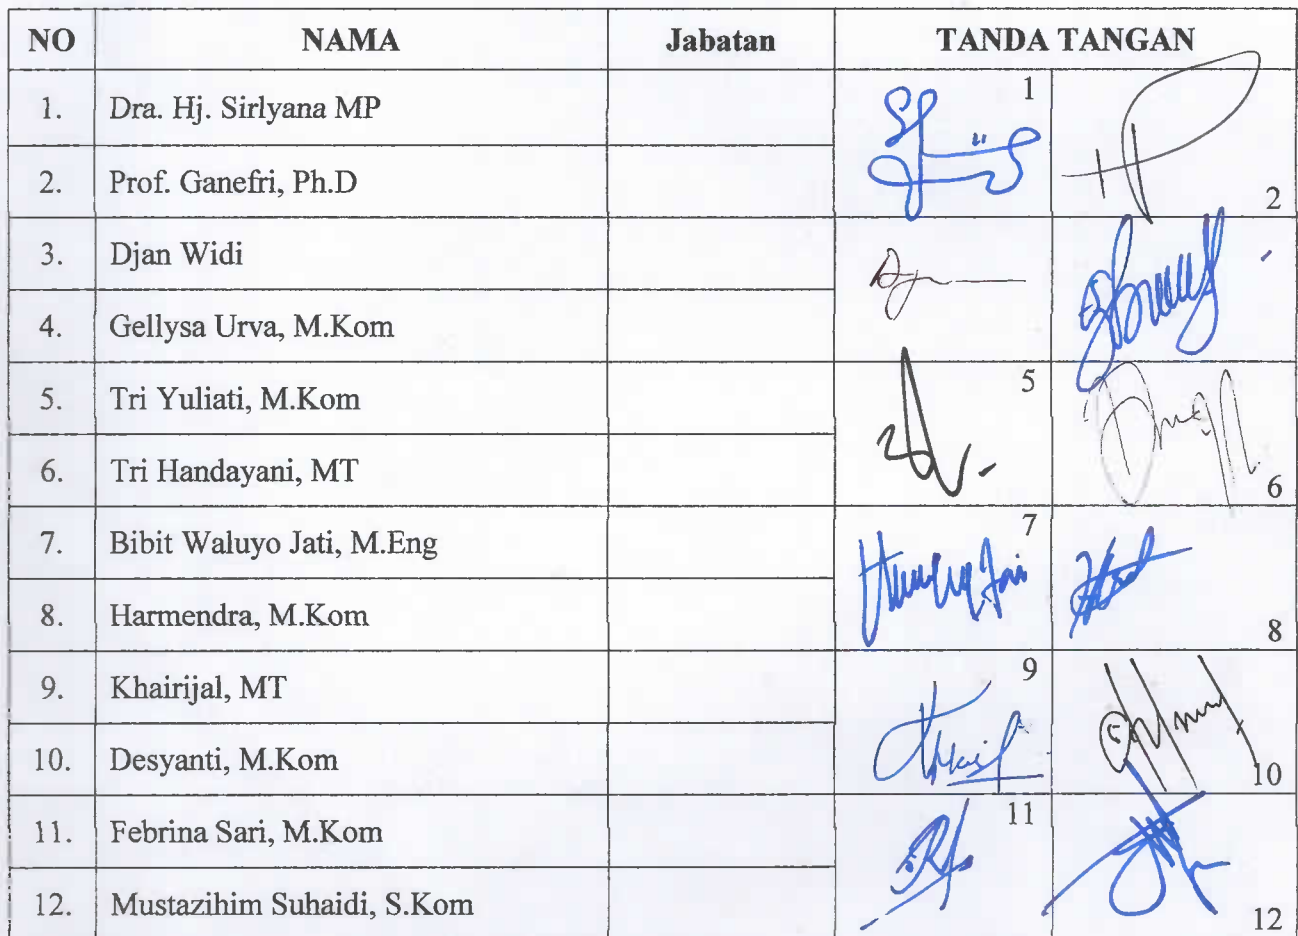 NO NAMA Jabatan TANDA TANGAN
1. Dra. Hj. Sirlyana MP 1
2. Prof. Ganefri, Ph.D 2
3. Djan Widi
4. Gellysa Urva, M.Kom
5. Tri Yuliati, M.Kom 5
6. Tri Handayani, MT 6
7. Bibit Waluyo Jati, M.Eng 7
8. Harmendra, M.Kom 8
9. Khairijal, MT 9
10. Desyanti, M.Kom 10
11. Febrina Sari, M.Kom 11
12. Mustazihim Suhaidi, S.Kom 12